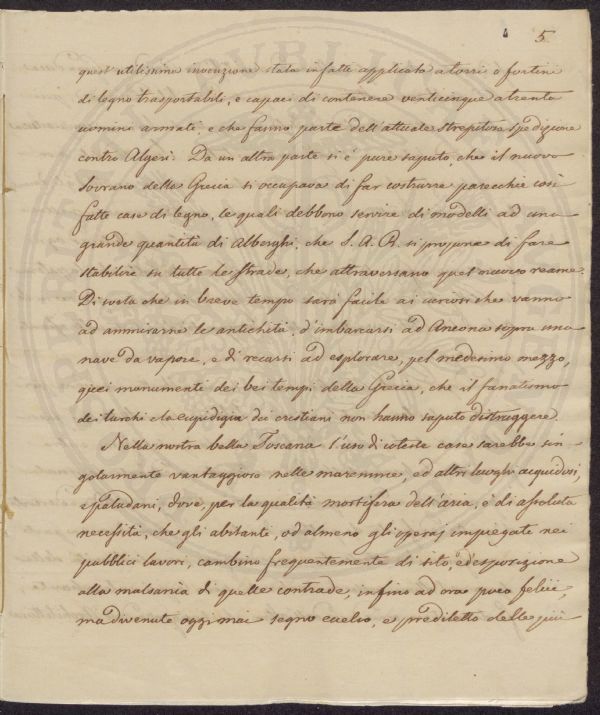 5
quest'utilissima invenzione stata infatti applicata a torri e fortini
di legno trasportabili, e capaci di contenere venticinque a trenta
uomini armati, e che fanno parte dell'attuale strepitosa spedizione
contro Algeri. Da un altra parte si è pure saputo, che il nuovo
Sovrano della Grecia si occupava di far costrurre parecchie così
fatte case di legno, le quali debbono servire di modelli ad una
grande quantità di Alberghi, che S. A. R. si propone di fare
stabilire su tutte le strade, che attraversano quel nuovo reame.
che in breve tempo sarà facile ai curiosi che vanno
ad ammirarne le antichità, d'imbarcarsi ad Ancona sopra una
nave da vapore, e di recarsi ad esplorare, pel medesimo mezzo,
quei monumenti dei bei tempi della Grecia, che il fanatismo
dei turchi e la cupidigia dei cristiani non hanno saputo distruggere.
Nella nostra bella Toscana l'uso di coteste case sarebbe sin-
golarmente vantaggioso nelle maremme, ed altri luoghi acquidosi,
e paludani, dove, per la qualità mortifera dell'aria, è di assoluta
necessità, che gli abitanti, od almeno gli operaj impiegati nei
pubblici lavori, cambino frequentemente di sito, e d'esposizione
alla malsania di quelle contrade, infino ad ora poco felici,
ma divenute oggimai segno eccelso, e prediletto delle più